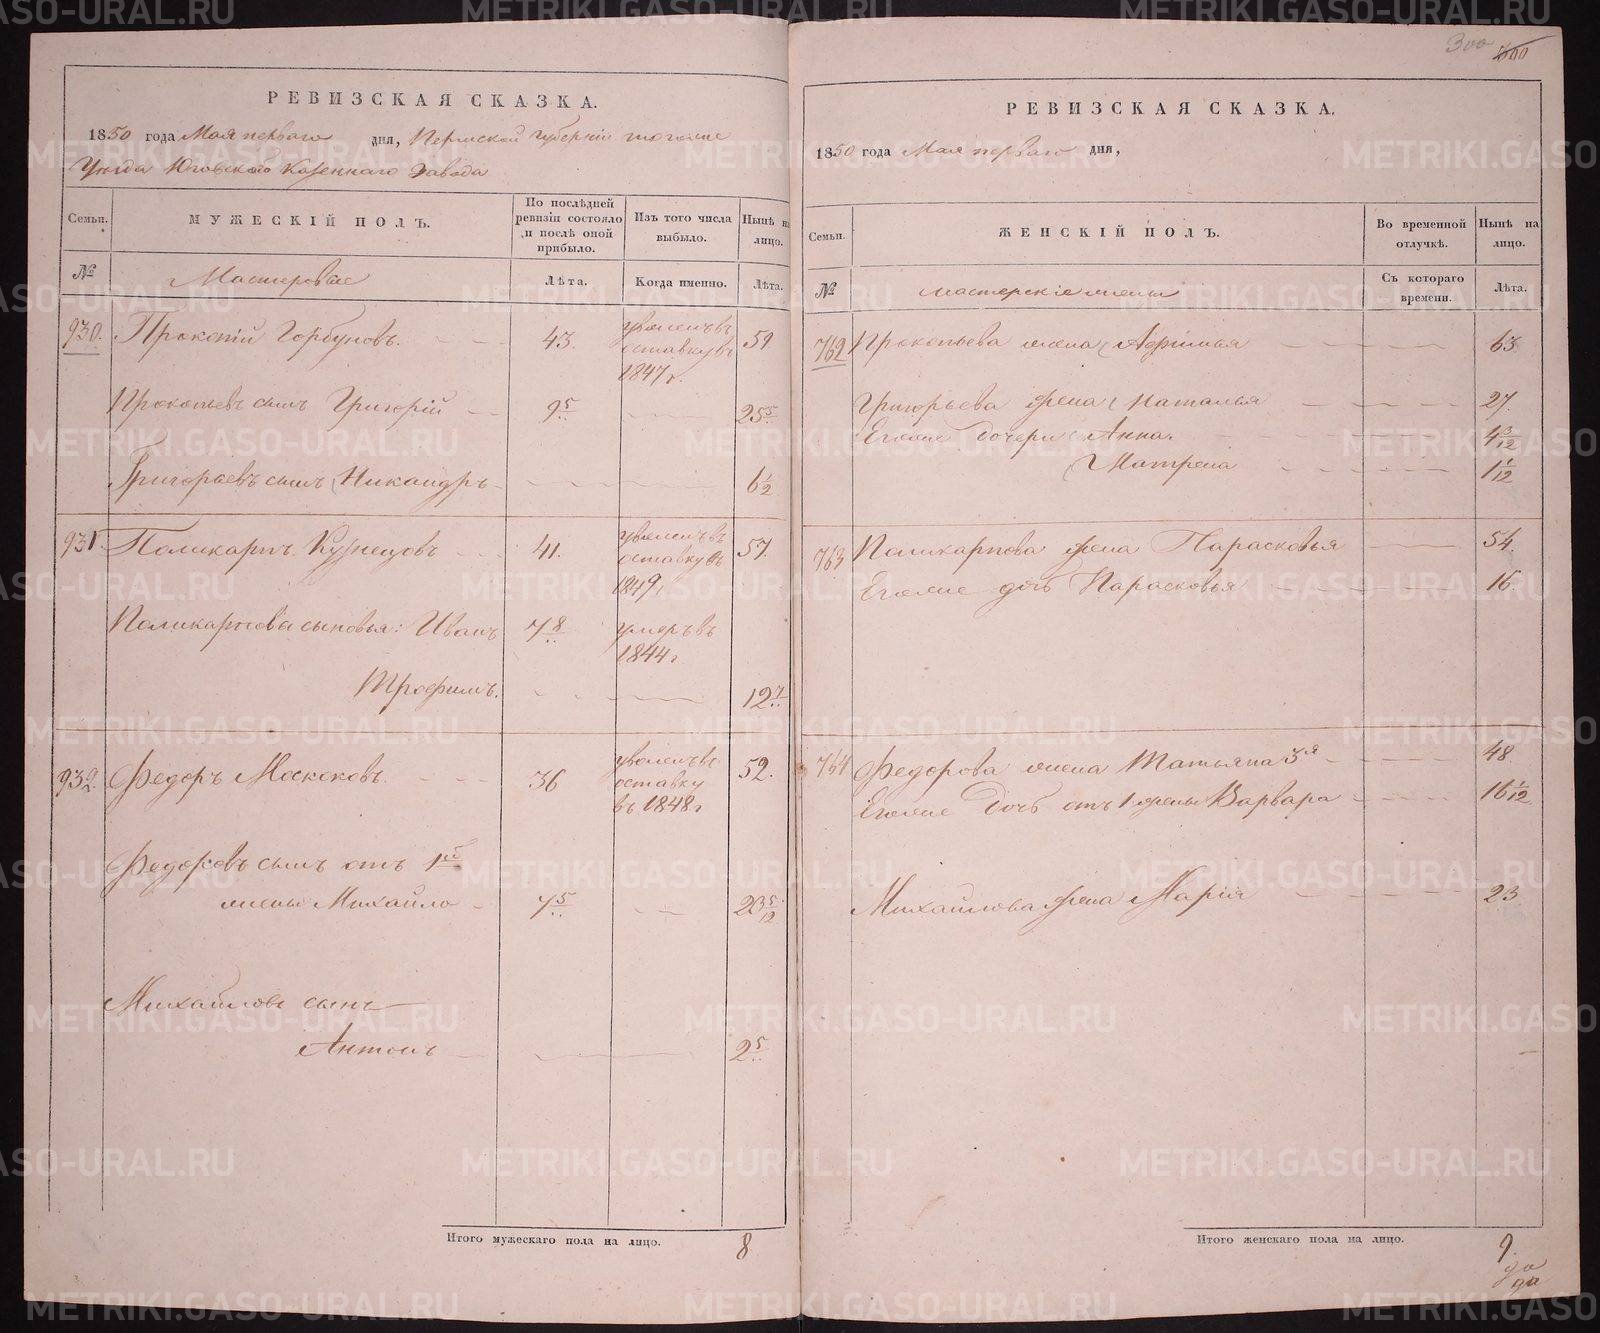 РЕВИЗСКАЯ СКАЗКА.
1850 года Мая перваго дня, Пермской губернии тогоже
Уѣзда Юговскаго Казеннаго Завода
Семьи.
МУЖЕСКІЙ ПОЛЪ.
По послѣдней ревизіи состояло и послѣ оной прибыло.
Изъ того числа выбыло.
Нынѣ на лицо.
№
Мастеровые
Лѣта.
Когда именно.
Лѣта.
930. Прокопій Горбуновъ. 43. уволенъ въ отставку въ 1847 г. 59
Прокопьевъ сынъ Григорій 9 5/.. 25 5/..
Григорьевъ сынъ Никандръ 6 1/2
931. Поликарпъ Кузнецовъ 41. уволенъ въ отставку въ 1849 г. 57.
Поликарповы сыновья: Иванъ 7 8/.. умеръ въ 1844 г.
Трофимъ. 12 7/..
932. Федоръ Москоковъ. 36 уволенъ въ отставку въ 1848 г 52.
Федоровъ сынъ отъ 1ой
жены Михайло 7 5/.. 23 5/12
Михайловъ сынъ
Антонъ 2 5/..
Итого мужескаго пола на лицо. 8
300 600
РЕВИЗСКАЯ СКАЗКА.
1850 года Мая перваго дня,
Семьи.
ЖЕНСКІЙ ПОЛЪ.
Во временной отлучкѣ.
Нынѣ на лицо.
№
мастерскіе жены
Съ котораго времени.
Лѣта.
762 Прокопьева жена Афимья 63
Григорьева жена Наталья 27.
Егоже дочери Анна. 4 3/12
Матрена 1 1/12
763 Поликарпова жена Парасковья 54.
Егоже дочь Парасковья 16.
764 Федорова жена Татьяна 3я 48
Егоже дочь отъ 1 жены Варвара 16 1/12
Михайлова жена Марія 23
Итого женскаго пола на лицо. 9.
METRIKI.GASO-URAL.RU